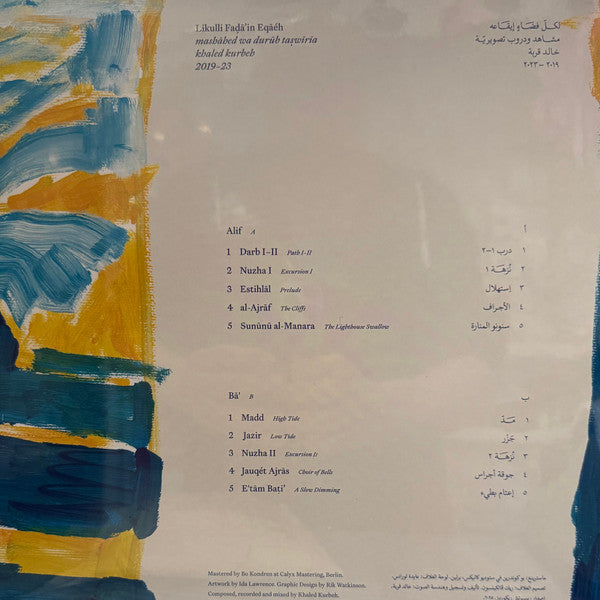 Likulli Faḍā'in Eqāéh
mashāhed wa durūb taṣwiria
khaled kurbeh
2019–23
لكلّ فضاءٍ إيقاعه
مشاهد ودروب تصويريّة
خالد قربة
٢٠١٩ – ٢٠٢٣
Alif A
1 Darb I–II Path I-II
2 Nuzha I Excursion I
3 Estihlāl Prelude
4 al-Ajrāf The Cliffs
5 Sunūnū al-Manara The Lighthouse Swallow
أ
١ درب ١–٢
٢ نُزهَة ١
٣ إستهلال
٤ الأجراف
٥ سنونو المنارة
Bā' B
1 Madd High Tide
2 Jazir Low Tide
3 Nuzha II Excursion II
4 Jauqét Ajrās Choir of Bells
5 E'tām Baṭi' A Slow Dimming
ب
١ مَدّ
٢ جَزْر
٣ نُزهَة ٢
٤ جوقة أجراس
٥ إعتام بطيء
Mastered by Bo Kondren at Calyx Mastering, Berlin.
Artwork by Ida Lawrence. Graphic Design by Rik Watkinson.
Composed, recorded and mixed by Khaled Kurbeh.
ماسترينغ: بو كوندرين في ستوديو كاليكس، برلين. لوحة الغلاف: عايدة لورانس.
تصميم الغلاف: ريك واتكينسون. تأليف وتسجيل وهندسة الصوت: خالد قربة.